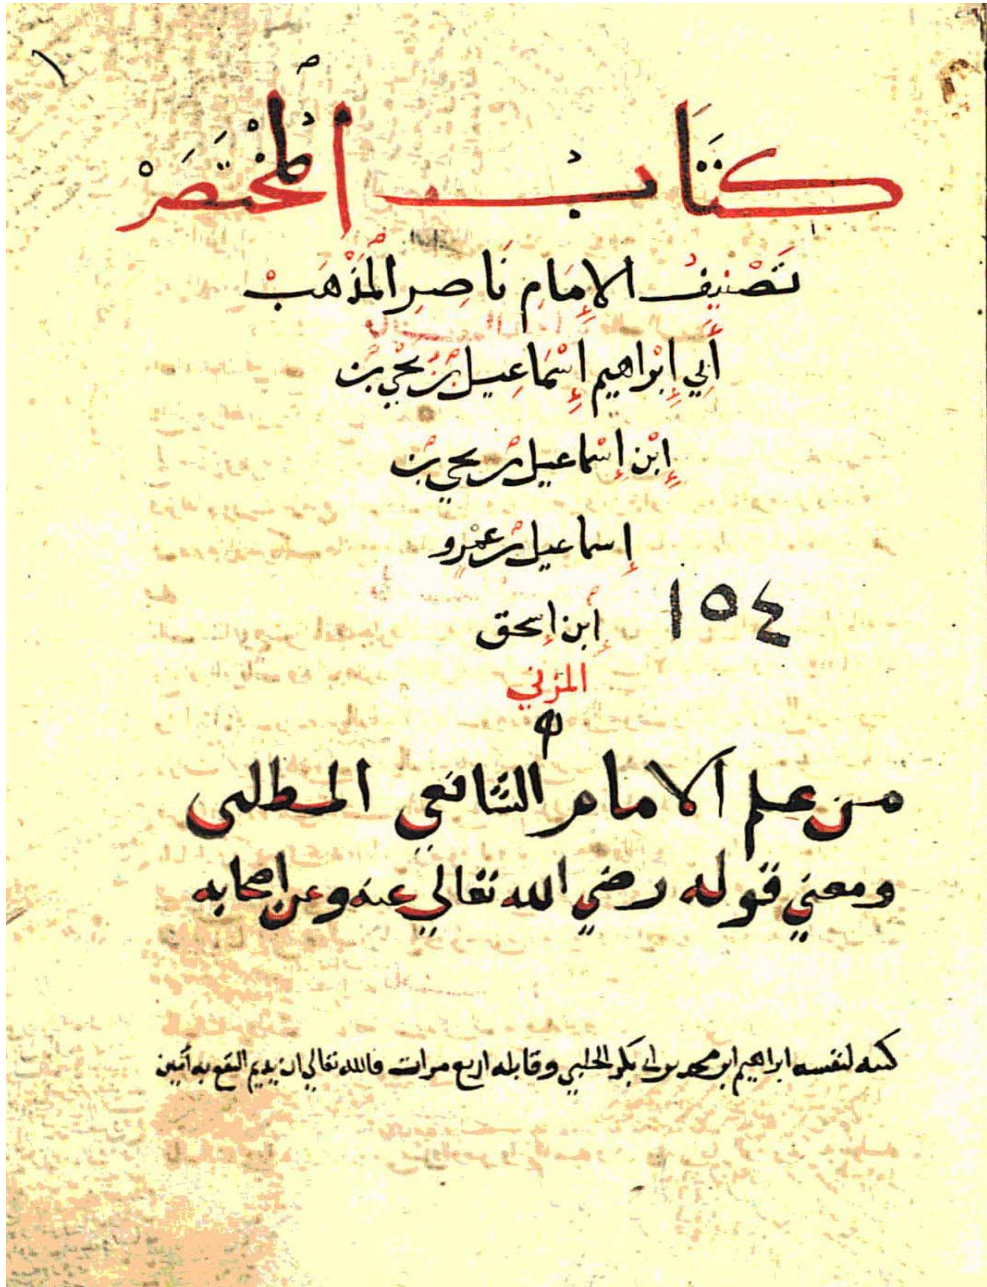 ١
كِتَابُ المُخْتَصَرْ
تَصْنِيفُ الإِمَامِ نَاصِرِ المَذْهَبْ
أَبِي إِبْرَاهِيم إِسْمَاعِيل بْنُ يَحْيَى بْن
إِبْن إِسْمَاعيل بْن يحيى بْن
إِسماعيل بْن عَمْرٍو
إبن إِسحق
١٥٤
المزني
من علم الامام الشافعي المطلبى
ومعني قوله رضي الله تعالي عنه وعن اصحابه
كتبه لنفسه ابراهيم ابن محمد بن ابى بكر الحلبي وقابله اربع مرات فالله تعالى ان يديم النفع به آمين